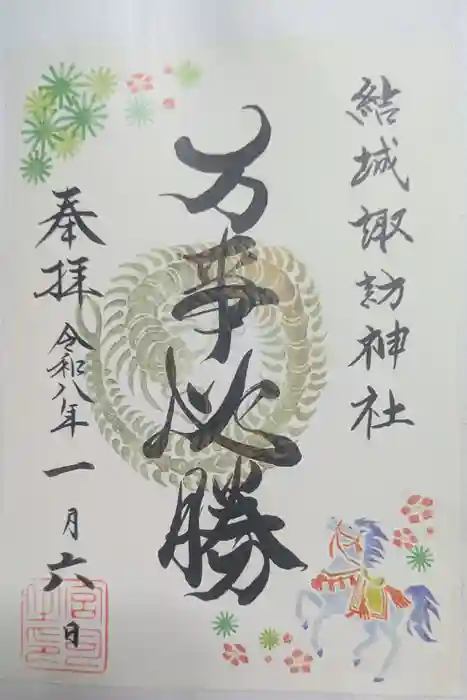 結城諏訪神社
万事必勝
奉拝
令和八年
一月六日